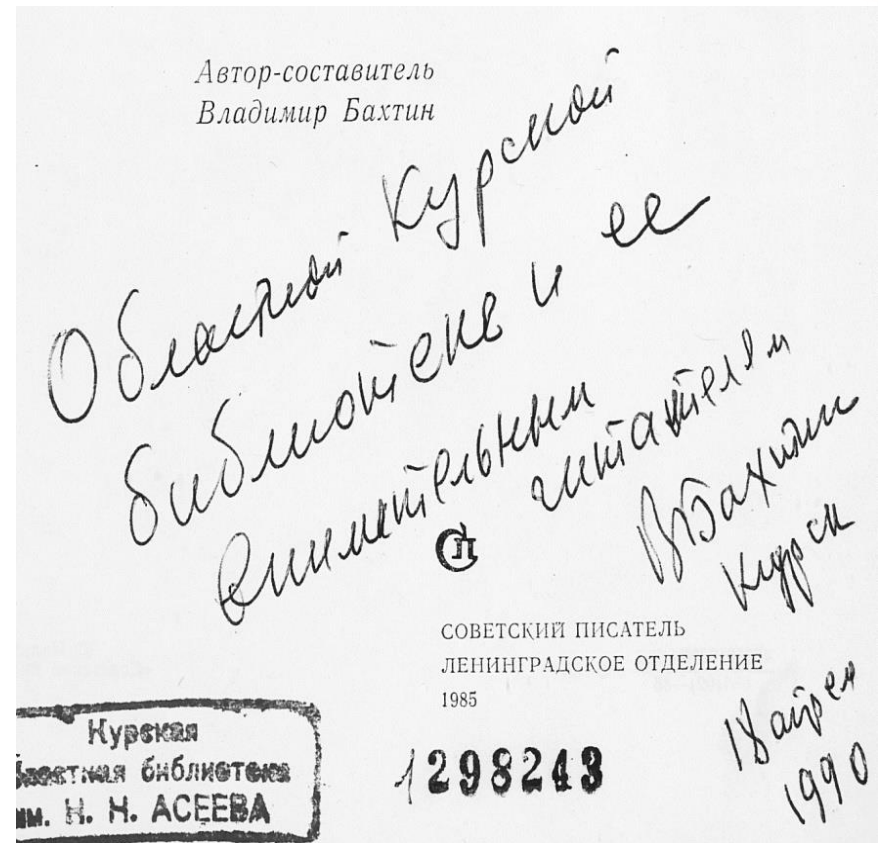 Автор-составитель
Владимир Бахтин
Областной Курской
библиотеке и ее
внимательным читателям
В Бахтин
Курск
18 апрел
1990
СП
СОВЕТСКИЙ ПИСАТЕЛЬ
ЛЕНИНГРАДСКОЕ ОТДЕЛЕНИЕ
1985
Курская
областная библиотека
им. Н. Н. АСЕЕВА
1298243